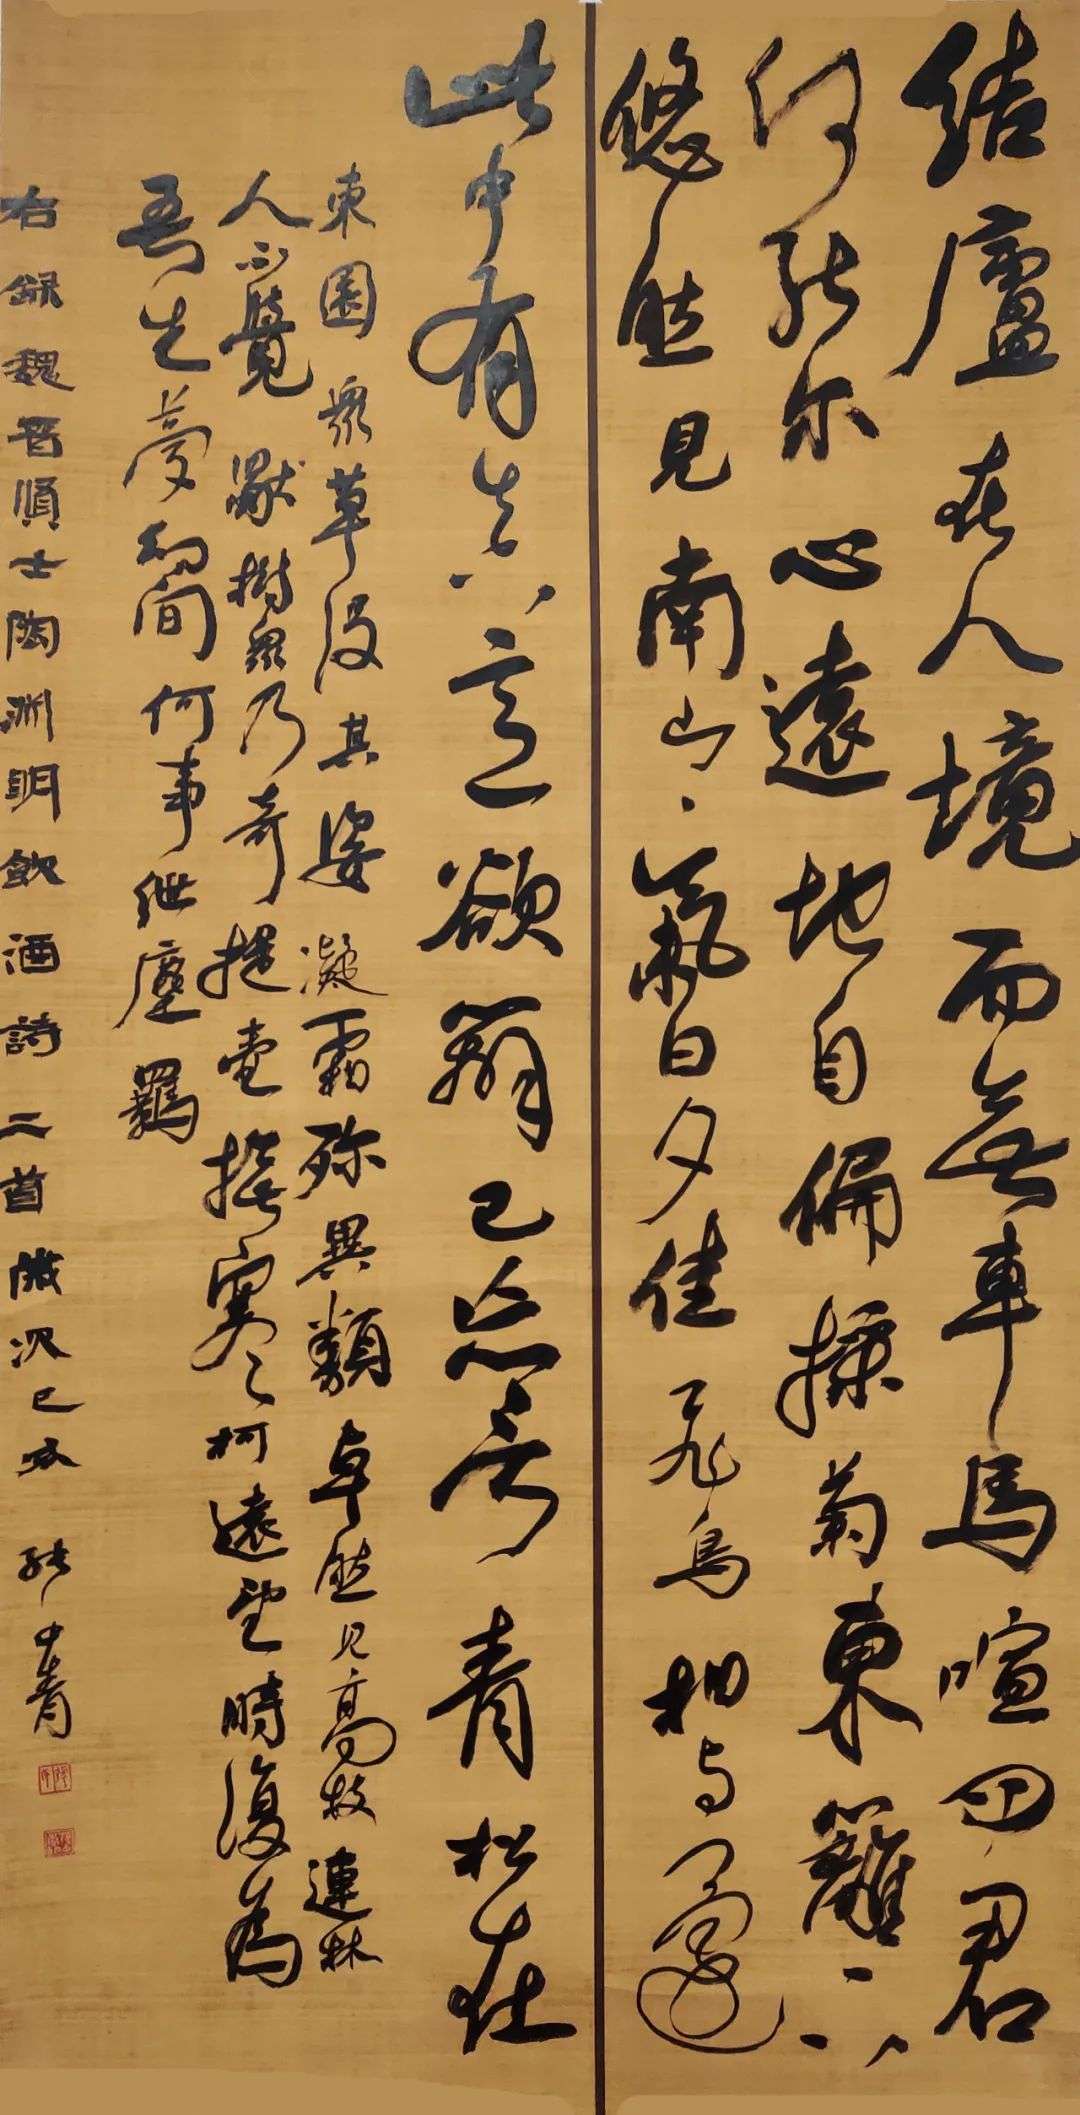 结廬在人境而無車馬喧问君
何能尔心遠地自偏採菊東籬下
悠然見南山、氣日夕佳飛鳥相与還
此中有真意欲辯已忘言青松在
東園眾草没其姿凝霜殄異類卓然見高枝連林
人不覺獸樹眾乃奇提壺撫寒柯遠望時復為
吾生夢幻间何事绁塵羈
右録魏晋士陶渊明飲酒詩二首歲次已